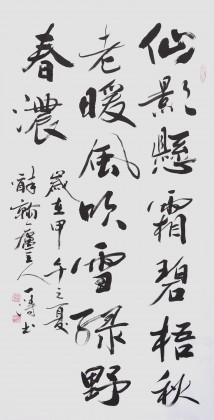 仙影懸霜碧梧秋
老暖風吹雪緑野
春濃
歲在甲午之夏
醉翰廬主人一濤书